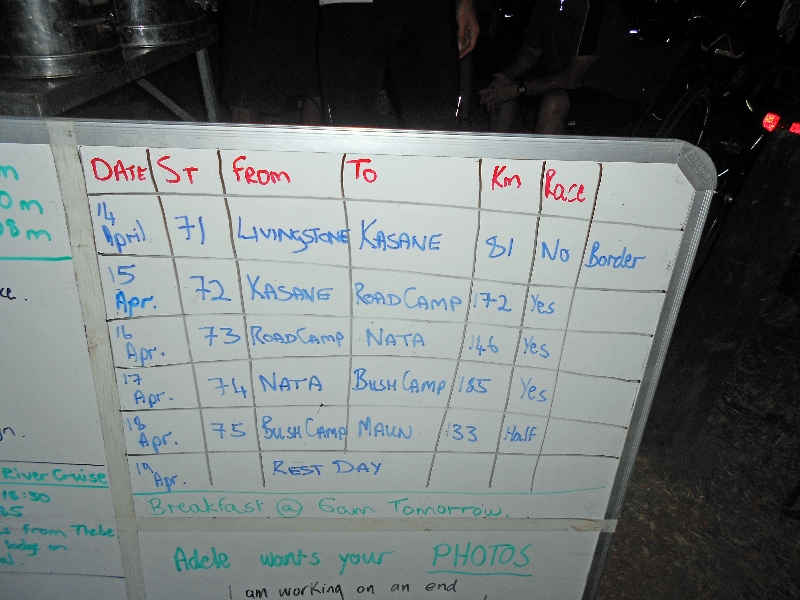 m
0m
08m
DATE ST FROM TO Km Race
14 April 71 LIVINGSTONE KASANE 81 No Border
15 Apr. 72 KASANE ROADCAMP 172 Yes
16 Apr. 73 ROADCAMP NATA 146 Yes
17 Apr. 74 NATA BUSHCAMP 185 Yes
18 Apr. 75 BUSHCAMP MAUN 133 Half
19 Apr. REST DAY
Breakfast @ 6am Tomorrow.
River Cruise
18:30
from Thebe
lodge on
Adele wants your PHOTOS
I am working on an end